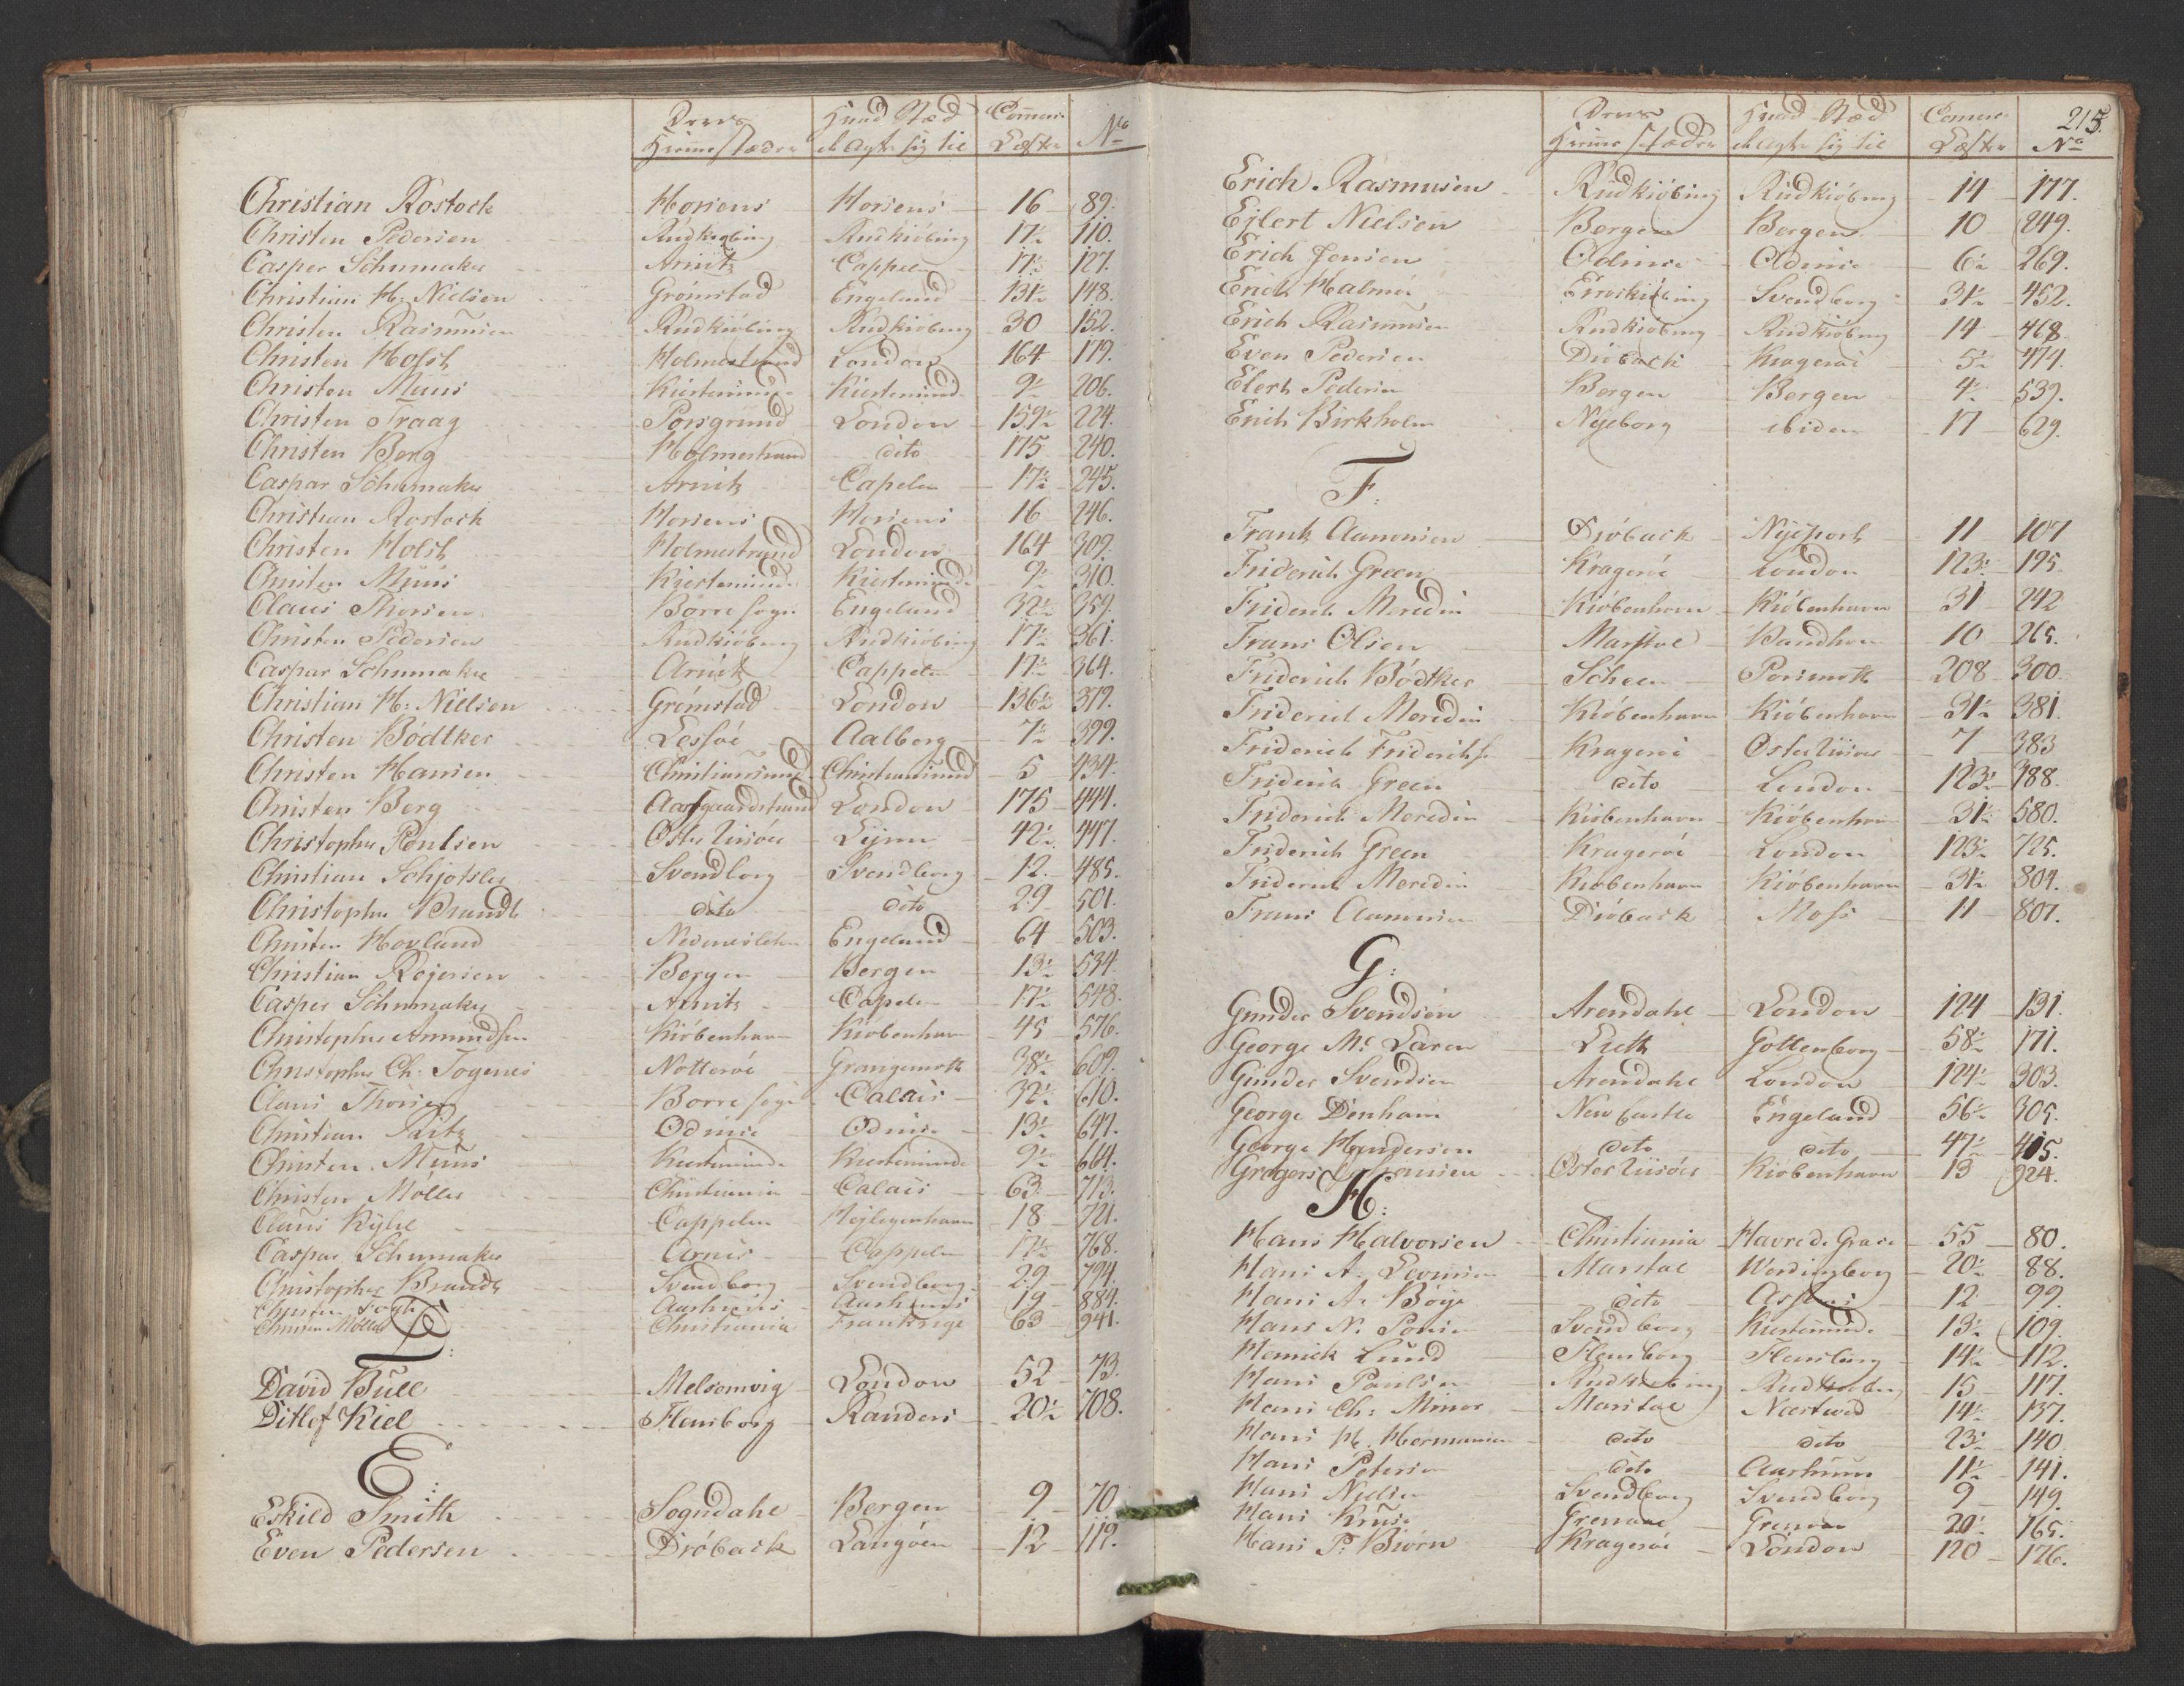 Deres Hvad Stæd Commerce
Hiemstæder de agter sig til Læster No
Christian Rostock Horsens Horsens 16 89.
Christen Pedersen Rudkiöbing Rudkiöbing 17½ 110.
Casper Schumaker Arnitz Cappeln 17½ 127.
Christian H: Nielsen Grömstad Engeland 131½ 148.
Christen Rasmusen Rudkiöbing Rudkiöbing 30 152.
Christen Holst Holmestrand London 164 179.
Christen Muus Kierteminde Kierteminde 9½ 206.
Christen Traag Porsgrund London 159½ 224.
Christen Berg Holmestrand dito 175 240.
Caspar Schumaker Arnitz Capelen 17½ 245.
Christian Rostock Horsens Horsens 16 246.
Christen Holst Holmestrand London 164 309.
Christen Muus Kierteminde Kierteminde 9½ 310.
Claus Thorsen Borre sogn Engeland 32½ 359.
Christen Pedersen Rudkiöbing Rudkiöbing 17½ 361.
Caspar Schumaker Arnitz Cappeln 17½ 364.
Christian H: Nielsen Grömstad London 136½ 379.
Christen Bödtker Lessöe Aalborg 7½ 399.
Christen Hansen Christiansund Christiansund 5 434.
Christen Berg Aasgaardstrand London 175 444.
Christopher Poulsen Öster Riisöer Lynn 42½ 447.
Christian Schjötsler Svendborg Svendborg 12 485.
Christopher Brandt dito dito 29 501.
Christen Hovland Nedeneslehn Engeland 64 503.
Christian Rejersen Bergen Bergen 13½ 534
Casper Schumaker Arnitz Capelen 17½ 548.
Christopher Amundsen Kiöbenhavn Kiöbenhavn 45 576.
Christopher Ch: Togenes Nötteröe Grangemoth 38½ 609.
Claus Thorsen Borre sogn Calais 32½ 610.
Christian Ritz Odense Odense 13½ 647.
Christen Muus Kierteminde Kierteminde 9½ 664.
Christen Möller Christiania Calais 63 713.
Claus Kyhl Cappelen Hejlegenhavn 18 721.
Caspar Schumaker Arnis Cappeln 17½ 768.
Christopher Brandt Svendborg Svendborg 29 794.
Christen Fogh Aarhuus Aarhuus 19 889.
Christen Möller Christiania Frankrige 63 941.
D:
David Bull Melsomvig London 52 73.
Ditlef Kiel Flensborg Randers 20½ 708.
E:
Eskild Smith Sogndahl Bergen 9 70.
Even Pedersen Dröback Langöen 12 119.
215.
Deres Hvad Stæd Commerce
Hiemstæder de agter sig til Læster No
Erich Rasmusen Rudkiöbing Rudkiöbing 14 177.
Ejlert Nielsen Bergen Bergen 10 249.
Erich Jensen Odense Odense 6½ 269.
Erich Halmöe Eroeskiöbing Svendborg 31½ 452.
Erich Rasmusen Rudkiöbing Rudkiöbing 14 468.
Even Pedersen Dröback Krageröe 5½ 474.
Elert Pedersen Bergen Bergen 4½ 539.
Erich Birkholm Nyeborg ibidem 17 629.
F:
Frantz Aamonsen Dröback Nyeport 11 107
Friderich Green Krageröe London 123½ 195
Friderich Meredin Kiöbenhavn Kiöbenhavn 31 242
Frans Olsen Marstal Bandholm 10 265.
Friderich Bödtker Scheen Porsmoth 208 300.
Friderich Meredin Kiöbenhavn Kiöbenhavn 31½ 381.
Friderich Friderichs. Krageröe Öster Riisöer 7 383
Friderich Green dito London 123½ 388.
Friderich Meredin Kiöbenhavn Kiöbenhavn 31½ 580.
Friderich Green Krageröe London 123½ 725.
Friderich Meredin Kiöbenhavn Kiöbenhavn 31½ 804.
Frans Aamonsen Dröback Moss 11 807.
G:
Gunder Svendsen Arendahl London 124 131.
George Mc Laren Lieth Gottenborg 58½ 171.
Gunder Svendsen Arendahl London 124½ 303.
George Denham New Castle Engeland 56½ 305.
George Handersen dito dito 47½ 415.
Gregers Hansen Öster Riisöer Kiöbenhavn 13 924.
H:
Hans Halvorsen Christiania Havre de Grace 55 80.
Hans A: Levensen Marstal Wordingborg 20½ 88.
Hans A: Böye dito Assens 12 99.
Hans N. Povelsen Svendborg Kierteminde 13½ 109.
Henrick Lund Flensborg Flensborg 14½ 112.
Hans Poulsen Rudkiöbing Rudkiöbing 15 117.
Hans Ch: Minor Marstal Nestved 14½ 137.
Hans H. Hermansen dito dito 23½ 140
Hans Petersen dito Aarhuus 11½ 141.
Hans Nielsen Svendborg Svendborg 9 149.
Hans Kruse Grenaae Grenaae 20½ 165.
Hans P: Biörn Krageröe London 120 176.